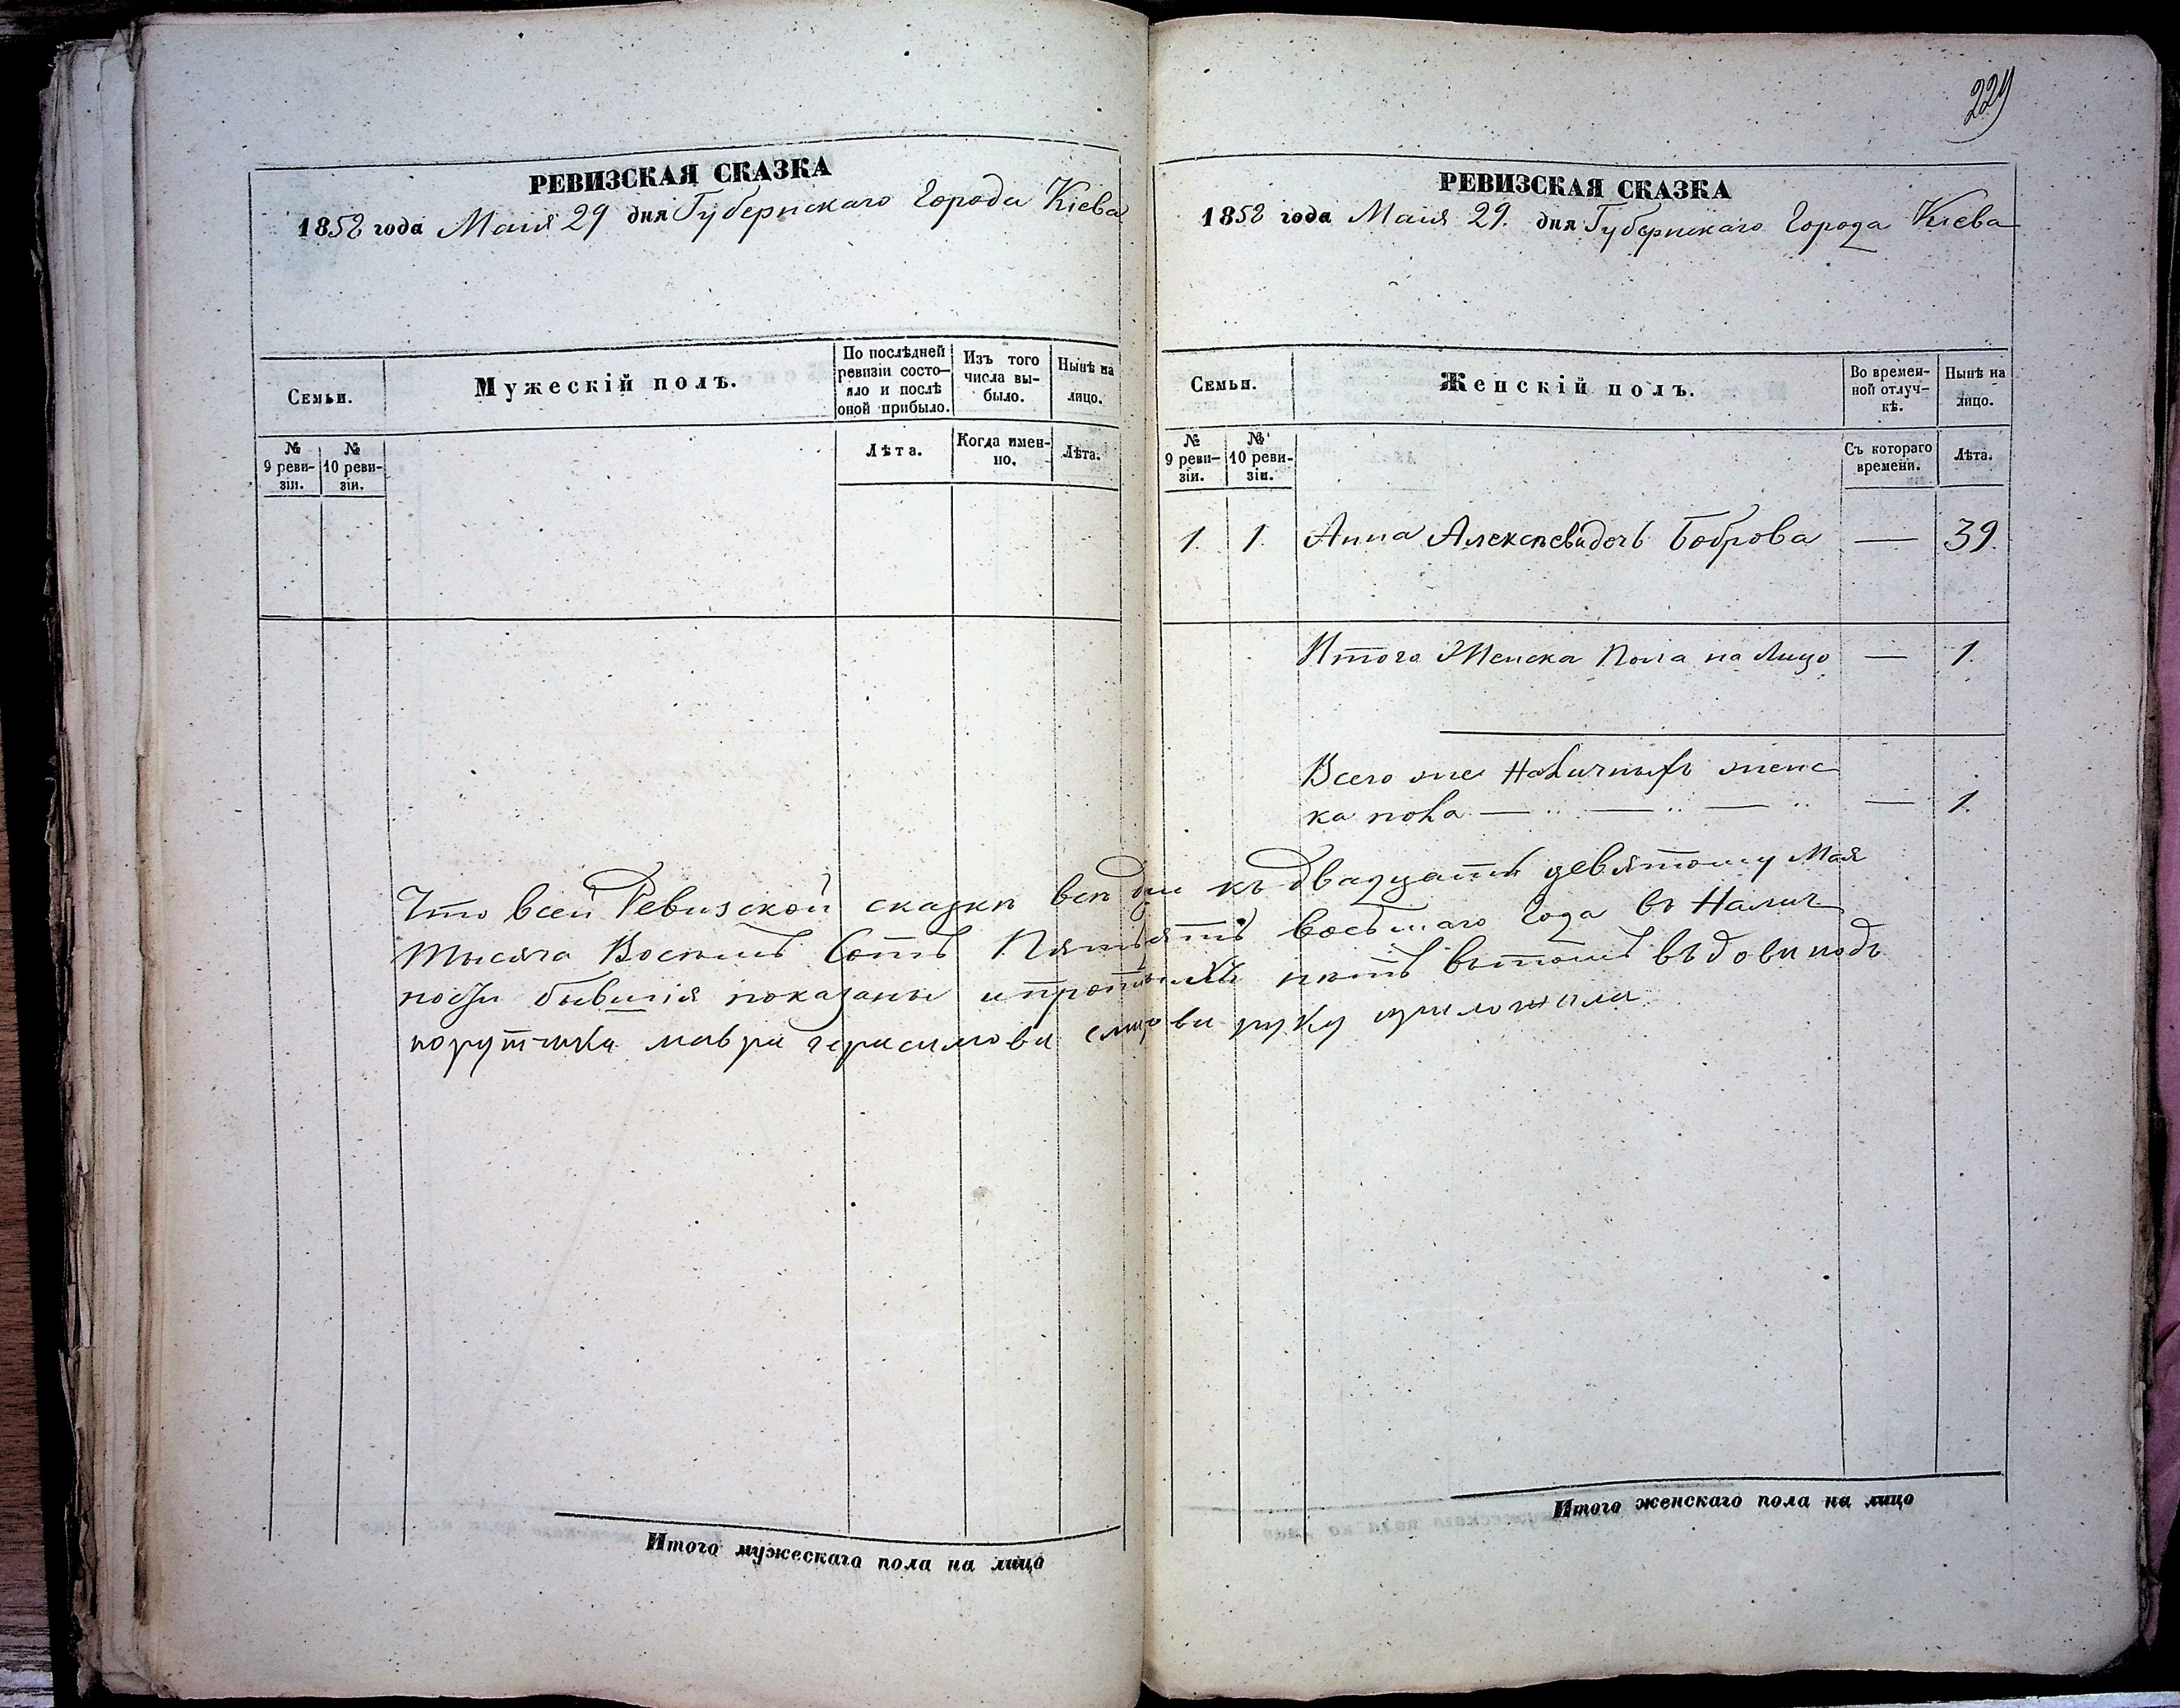 229
РЕВИЗСКАЯ СКАЗКА
1858 года Маія 29 дня Губернскаго Города Кіева
Семьи.
Мужескій полъ.
По послѣдней ревизіи состояло и послѣ оной прибыло.
Изъ того числа выбыло.
Нынѣ на лицо.
№ 9 ревизіи.
№ 10 ревизіи.
Лѣта.
Когда именно.
Лѣта.
РЕВИЗСКАЯ СКАЗКА
1858 года Маія 29. дня Губернскаго Города Кіева
Семьи.
Женскій полъ.
Во временной отлучкѣ.
Нынѣ на лицо.
№ 9 ревизіи.
№ 10 ревизіи.
Съ котораго времени.
Лѣта.
1. 1. Анна Алексѣева дочь Боброва — 39.
Итого Женска Пола на Лицо — 1.
Всего же Наличныхъ женс
ка пола — — — — 1.
Что всей Ревизской сказки всѣ къ двадцать девятому Мая
тысяча Восемь Сотъ Пятьдятъ восьмаго Года въ Налич
ности бывшія показаны и нѣтъ вътомъ въдова подъ
порутчика руку приложила
Итого мужескаго пола на лицо
Итого женскаго пола на лицо